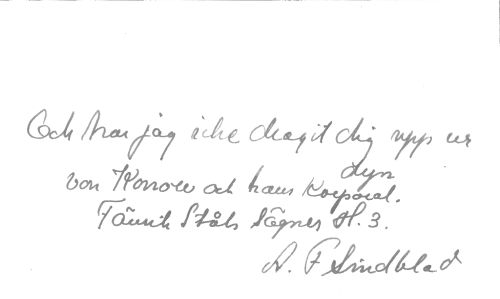 Och har jag icke dragit dig upp ur
dyn
von Konow och hans Korporal.
Fänrik Ståls Sägner H. 3.
A. F Lindblad